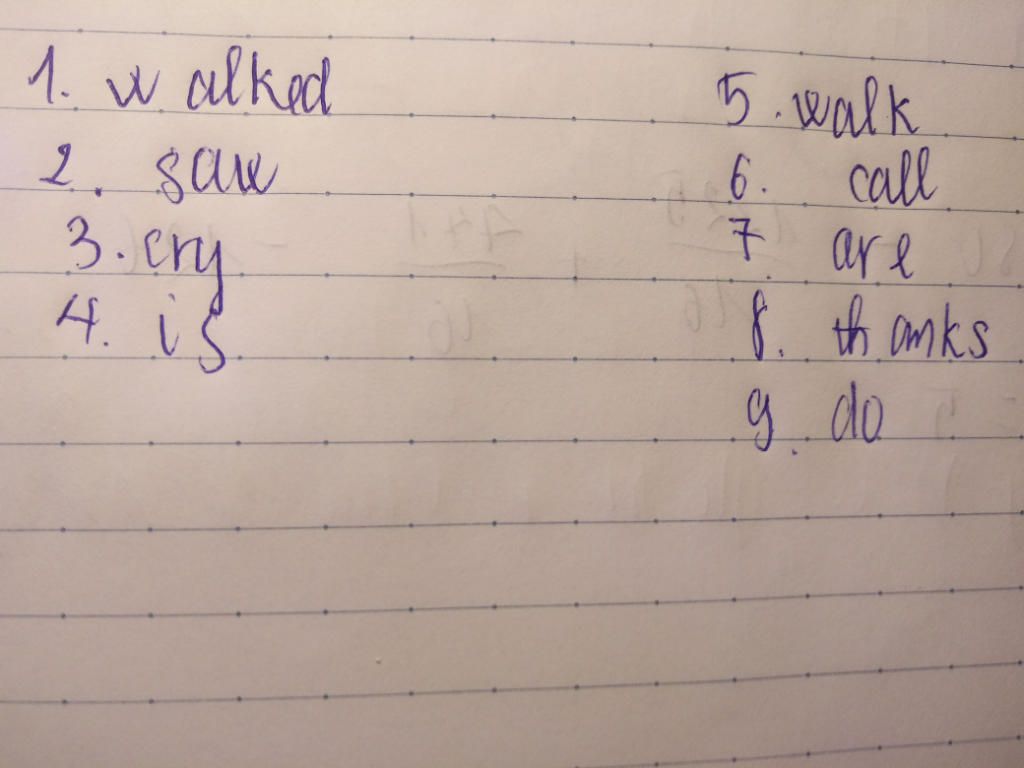 1. walked
2. saw
3. cry
4. is
5. walk
6. call
7. are
8. thanks
9. do